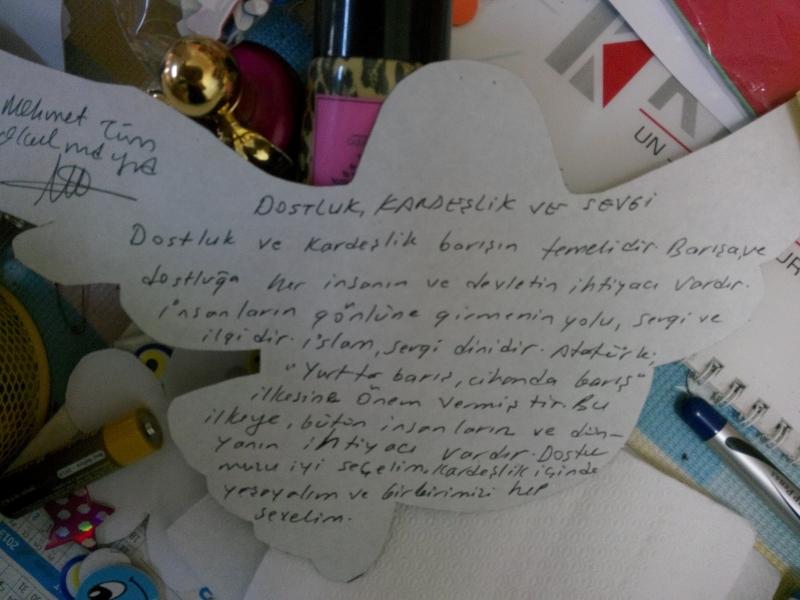 Mehmet Tüm
DOSTLUK, KARDEŞLİK VE SEVGİ
Dostluk ve Kardeşlik barışın temelidir. Barışa, ve
dostluğa her insanın ve devletin ihtiyacı vardır.
İnsanların gönlüne girmenin yolu, sevgi ve
ilgidir. İslam, sevgi dinidir. Atatürk;
"Yurtta barış, cihanda barış"
ilkesine önem vermiştir. Bu
ilkeye, bütün insanların ve dün-
yanın ihtiyacı vardır. Dostu
muzu iyi seçelim. Kardeşlik içinde
yaşayalım ve birbirimizi hep
sevelim.
UN
UR